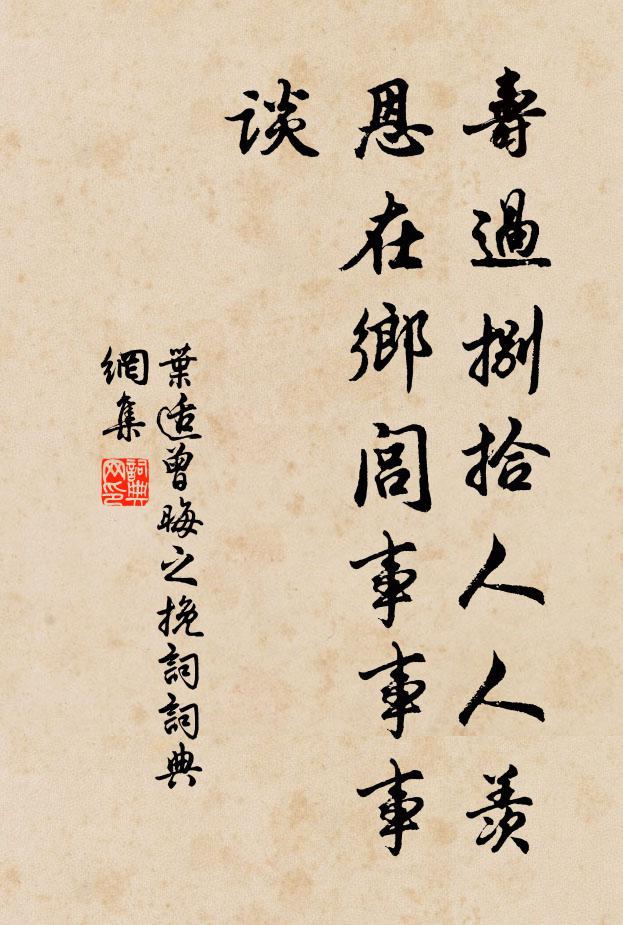 壽過捌拾人人羨
恩在鄉閭事事事
談
葉適曾晦之挽詞詞典
網集
詞典
网印